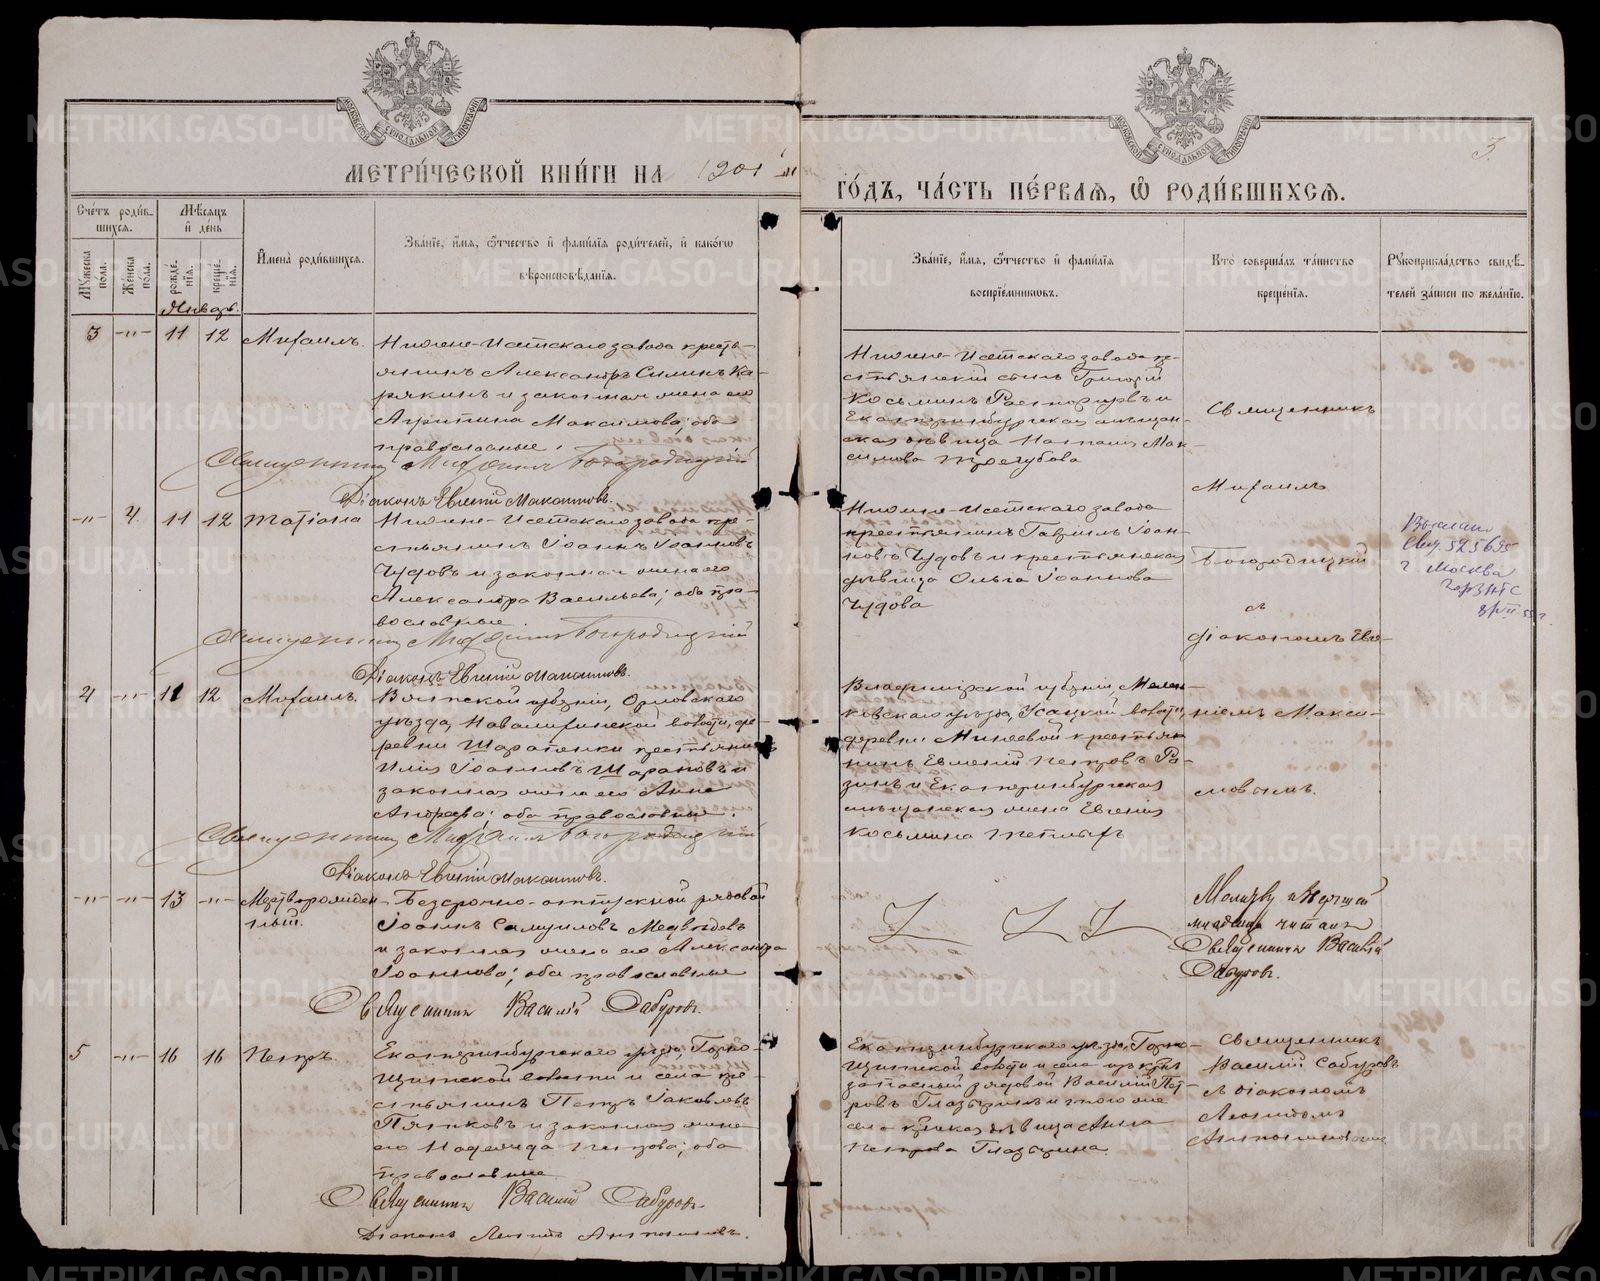 МЕТРИ́ЧЕСКОЙ КНИ́ГИ НА 1901 й
ГО́ДЪ, ЧА́СТЬ ПЕ́РВАЯ, Ѽ РОДИ́ВШИХСЯ.
3.
Сче́тъ роди́в-
шихся.
Мѣ́сяцъ
и҆ день
Мꙋжеска пола.
Же́нска по́ла.
рожде́-
нїя.
креще́-
нїя.
И҆мена̀ роди́вшихся.
Зва́нїе, и҆́мя, ѻ҆́тчество и҆ фами́лїя роди́телей, и҆ како́гѡ
вѣроисповѣ́данїя.
Зва́нїе, и҆́мя, ѻ҆́тчество и҆ фами́лїя
воспрїе́мниковъ.
Кто̀ соверша́лъ та́инство
креще́нїя.
Рꙋкоприкла́дство свидѣ́-
телей за́писи по жела́нїю.
Январь.
3 -"- 11 12 Михаилъ.
Нижне-Исетскаго завода кресть-
янинъ Александръ Силинъ Ка-
рякинъ и законная жена его
Агрипина Максимова; оба
православные.
Священникъ Михаилъ Богородицкій
Діаконъ Евгеній Максимовъ.
Нижне-Исетскаго завода кре-
стьянскій сынъ Григорій
Косьминъ и
Екатеринбургская мѣщан-
ская дѣвица Мак-
симова Трегубова
Священникъ
Михаилъ
Богородицкій
съ
діакономъ Евге-
ніемъ Макси-
мовымъ.
-"- 4. 11 12 Татіана
Нижне-Исетскаго завода кре-
стьянинъ Іоаннъ Іоанновъ
Чудовъ и законная жена его
Александра Васильева; оба пра-
вославные.
Священникъ Михаилъ Богородицкій
Діаконъ Евгеній Максимовъ.
Нижне-Исетскаго завода
крестьянинъ Гавріилъ Іоан-
новъ Чудовъ и крестьянская
дѣвица Ольга Іоаннова
Чудова
г. Москва
4 -"- 11 12 Михаилъ.
Вятской губерніи, Орловскаго
уѣзда, волости, де-
ревни крестьянинъ
Илія Іоанновъ Шараповъ и
законная жена его Анна
Андреева; оба православные.
Священникъ Михаилъ Богородицкій
Діаконъ Евгеній Максимовъ.
Владимірской губерніи, Мелен-
ковскаго уѣзда, Усадской волости,
деревни крестья-
нинъ Евгеній Петровъ Ра-
зинъ и Екатеринбургская
мѣщанская жена Евгенія
Косьмина
-"- -"- 13 -"- Мертворожден-
ный.
Безсрочно-отпускной рядовой
Іоаннъ Самуиловъ Медвѣдевъ
и законная жена его Александра
Іоаннова; оба православные
Священникъ Василій Сабуровъ.
Молитву
младенца читалъ
Священникъ Василій
Сабуровъ.
5 -"- 16 16 Петръ.
Екатеринбургскаго уѣзда, Горно-
щитской волости и села кре-
стьянинъ Петръ Іаковлевъ
Пятковъ и законная жена
его Надежда Петрова; оба
православные
Священникъ Василій Сабуровъ.
Діаконъ Леонидъ Антониновъ.
Екатеринбургскаго уѣзда, Горно-
щитской волости и села
запасный рядовой Василій Пет-
ровъ Глазыринъ и того же
села дѣвица Анна
Петрова Глазырина.
Священникъ
Василій Сабуровъ
съ діакономъ
Леонидомъ